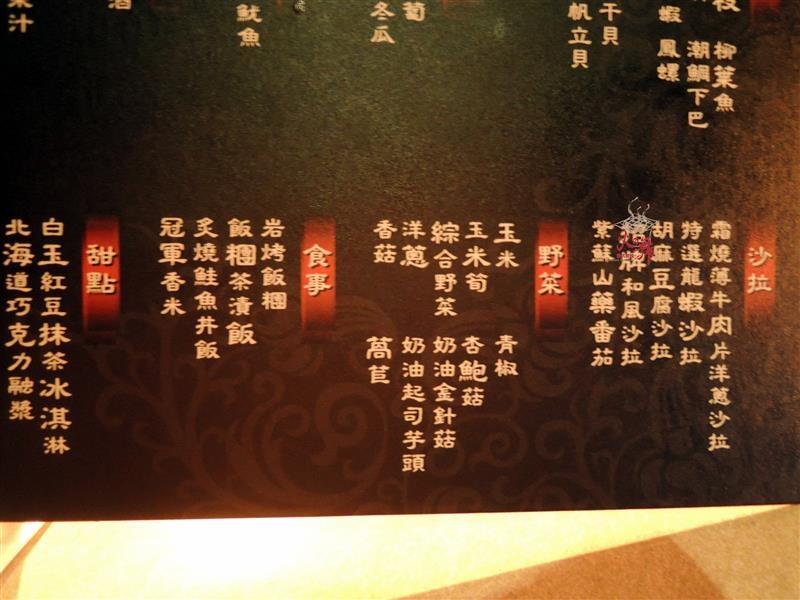 柳葉魚
潮鯛下巴
蝦 鳳螺
干貝
帆立貝
冬瓜
魷魚
酒
汁
沙拉
霜燒薄牛肉片洋蔥沙拉
特選龍蝦沙拉
胡麻豆腐沙拉
牌和風沙拉
紫蘇山藥番茄
野菜
玉米 青椒
玉米筍 杏鮑菇
綜合野菜 奶油金針菇
洋蔥 奶油起司芋頭
香菇 萵苣
食事
岩烤飯糰
飯糰茶漬飯
炙燒鮭魚丼飯
冠軍香米
甜點
白玉紅豆抹茶冰淇淋
北海道巧克力融漿